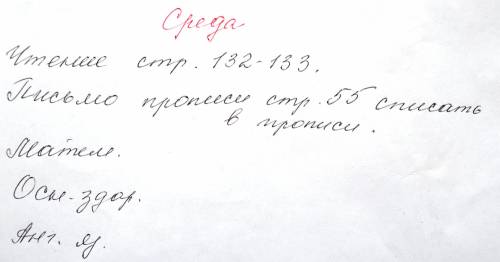 Среда
Чтение стр. 132-133.
Письмо прописи стр. 55 списать
в прописи.
Матем.
Осн. здор.
Анг. яз.